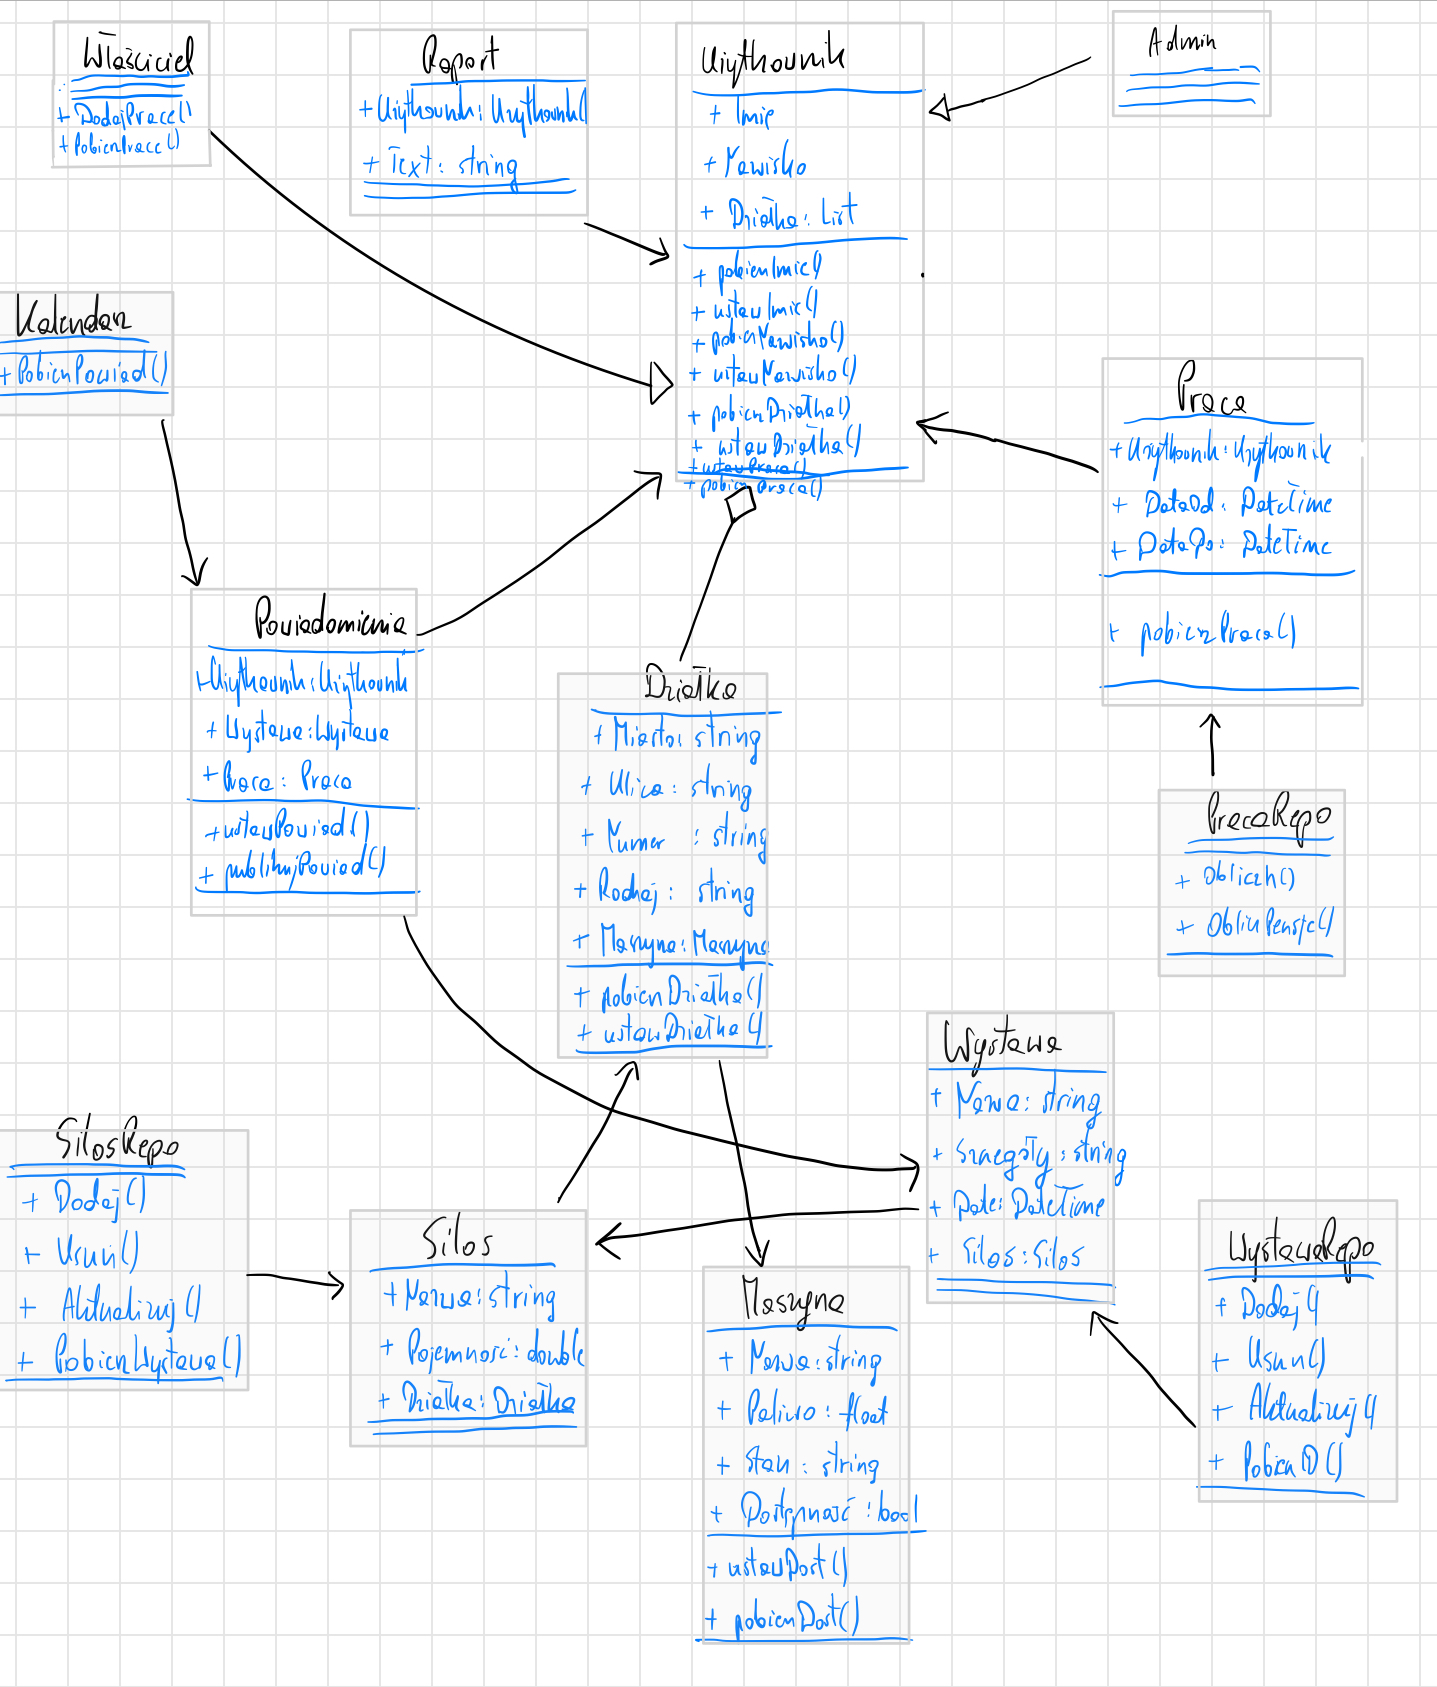 Właściciel
+ DodajPrace()
+ PobierzPrace()
Raport
+ Użytkownik: Użytkownik
+ Text: string
Użytkownik
+ Imię
+ Nazwisko
+ Działka: List
+ pobierzImie()
+ ustawImie()
+ pobierzNazwisko()
+ ustawNazwisko()
+ pobierzDziałka()
+ ustawDziałka()
+ ustawPraca()
+ pobierzPraca()
Admin
Kalendarz
+ PobierzPowiad()
Praca
+ Użytkownik: Użytkownik
+ DataOd: DateTime
+ DataDo: DateTime
+ pobierzPraca()
Powiadomienia
+ Użytkownik: Użytkownik
+ Wystawa: Wystawa
+ Praca: Praca
+ ustawPowiad()
+ publikujPowiad()
Działka
+ Miasto: string
+ Ulica: string
+ Numer : string
+ Rodzaj: string
+ Maszyna: Maszyna
+ pobierzDziałka()
+ ustawDziałka()
PracaRepo
+ Obliczh()
+ ObliczPensje()
Wystawa
+ Nazwa: string
+ Szczegóły: string
+ Data: DateTime
+ Silos: Silos
SilosRepo
+ Dodaj()
+ Usuń()
+ Aktualizuj()
+ PobierzWystawa()
Silos
+ Nazwa: string
+ Pojemność: double
+ Działka: Działka
Maszyna
+ Nazwa: string
+ Paliwo: float
+ Stan: string
+ Dostępność: bool
+ ustawDost()
+ pobierzDost()
WystawaRepo
+ Dodaj()
+ Usuń()
+ Aktualizuj()
+ PobierzID()